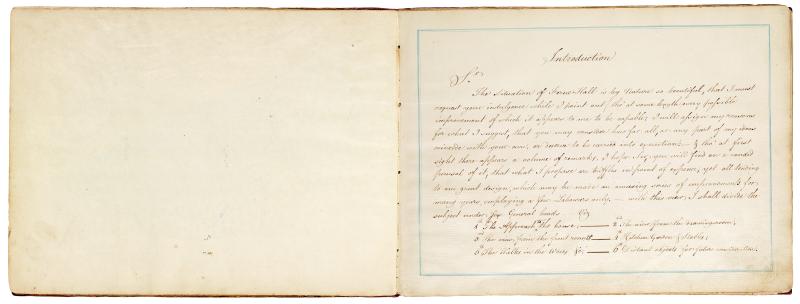 Introduction
Sr.
The Situation of Hall is by Nature so beautiful, that I must
request your indulgence while I point out (tho' at some length) every possible
improvement of which it appears to me to be capable; I will assign my reasons
for what I suggest, that you may consider how far all, or any part of my ideas
coincide with your own, or deserve to be carried into execution:— & tho' at first
sight there appears a volume of remarks, I hope Sir, you will find on a candid
perusal of it, that what I propose are trifles in point of expence, yet all tending
to one great design, which may be made an amusing series of improvements for
many years, employing a few Labourers only. — with this view, I shall divide the
subject under six General heads Viz
1st The Approach to the house; 2d The view from the drawing room;
3d The view from the front 4th Kitchen Garden & Stables;
5th The Walks in the Woods &c; 6th Distant objects for future consideration.